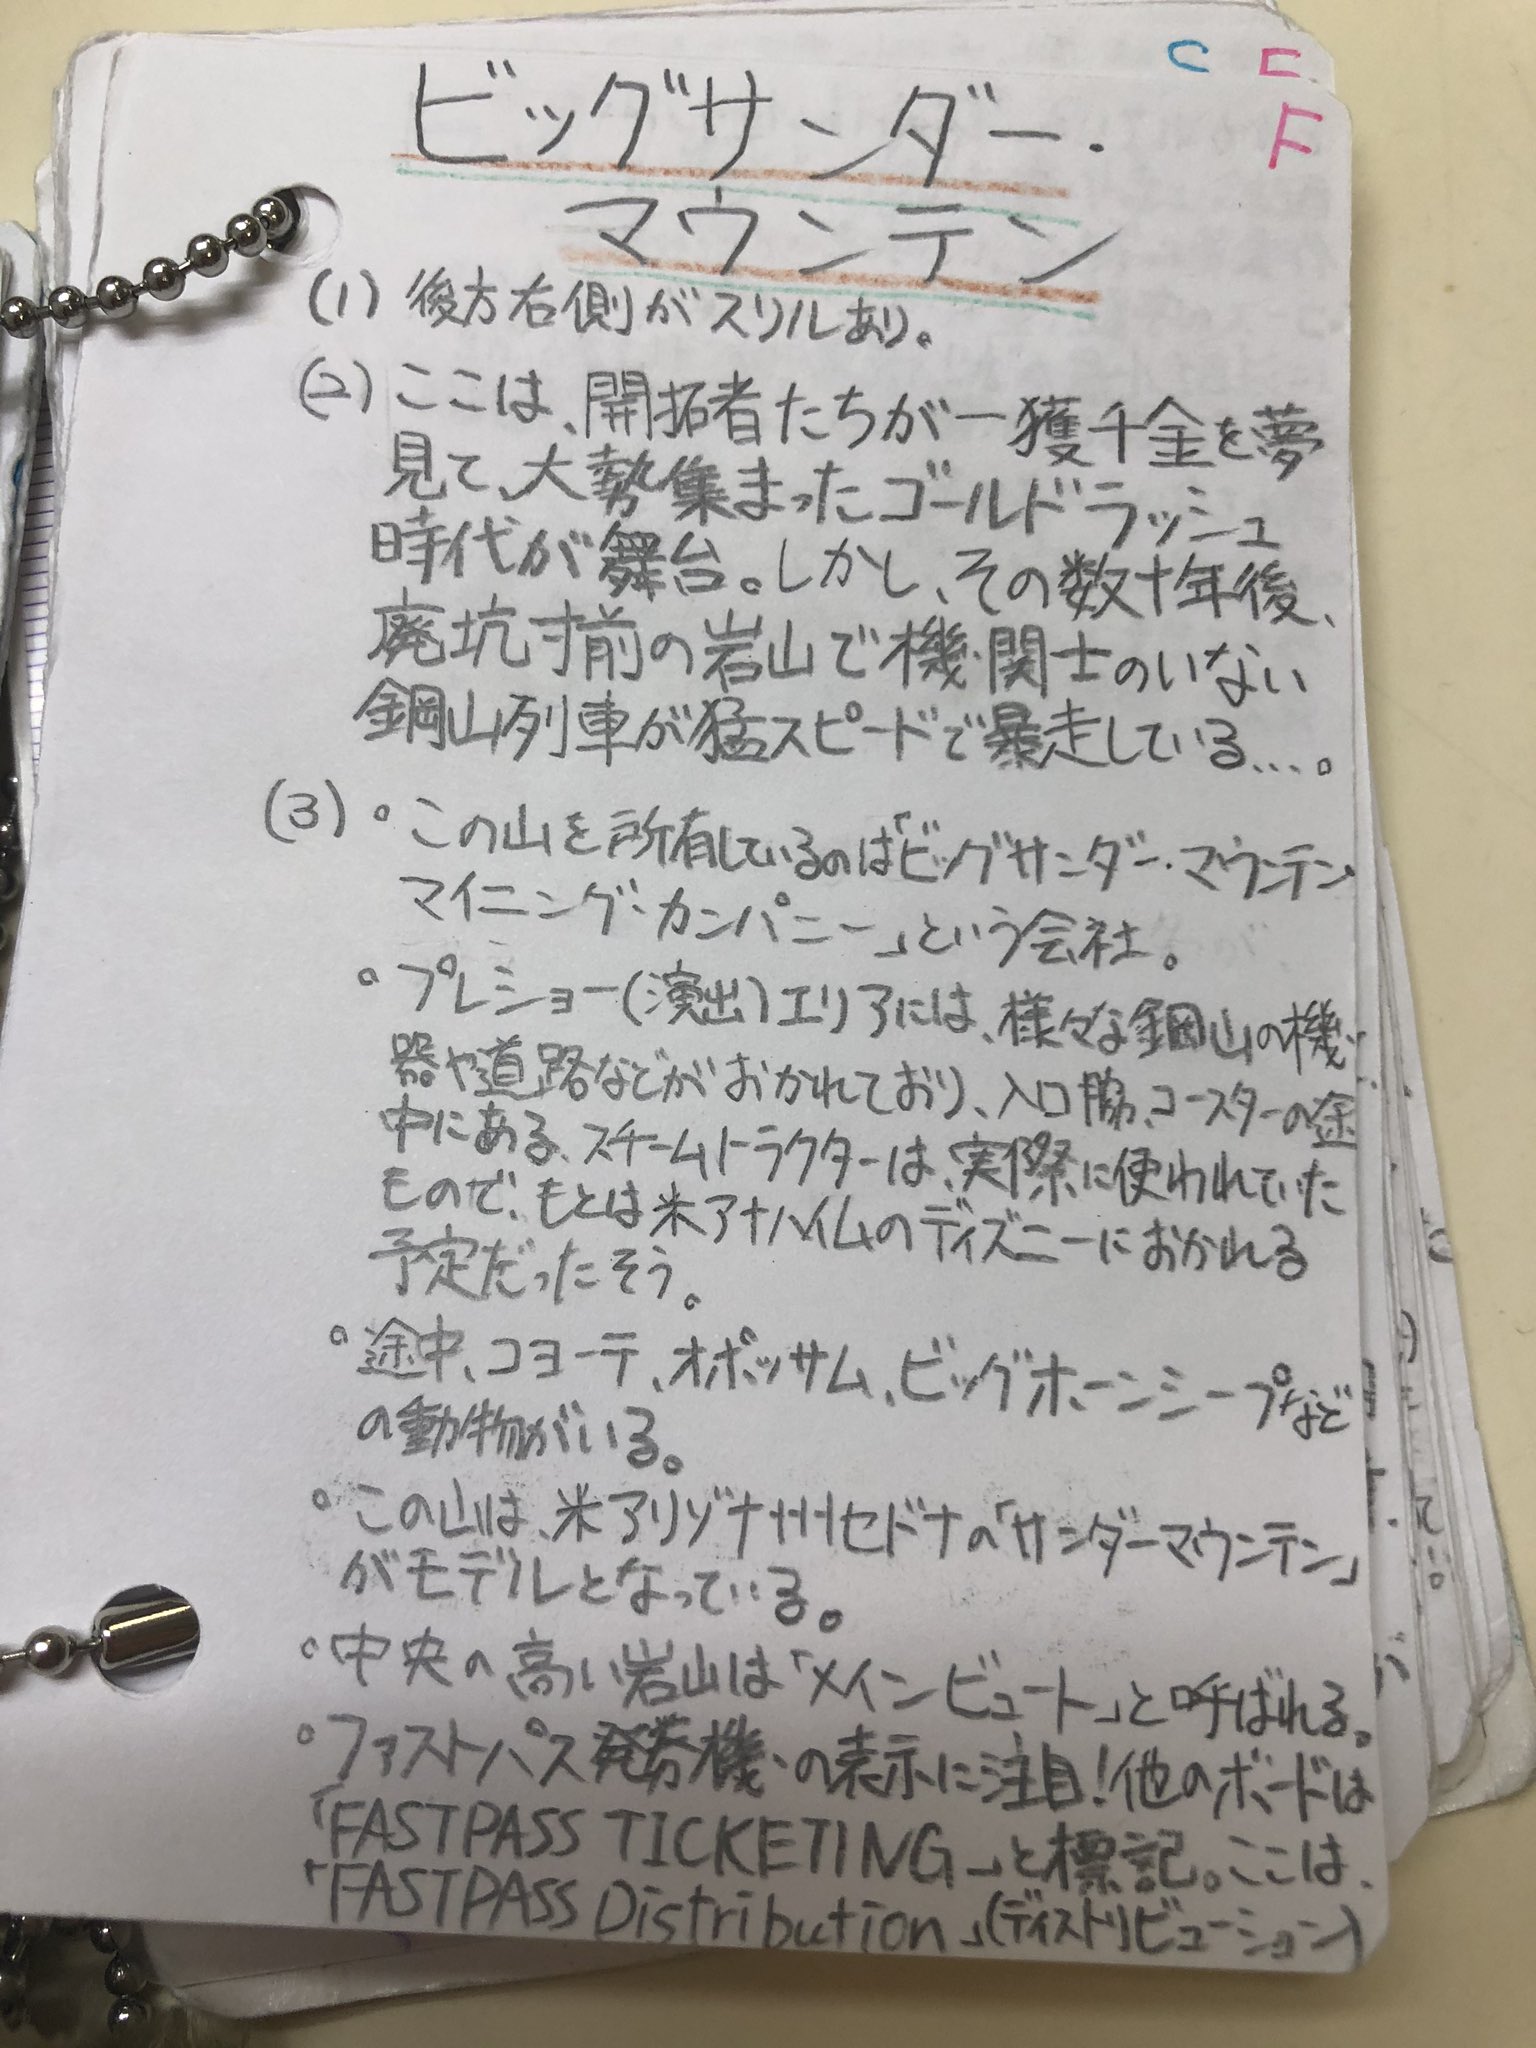 C F
F
ビッグサンダー・
マウンテン
(1) 後方右側がスリルあり。
(2) ここは、開拓者たちが一獲千金を夢
見て、大勢集まったゴールドラッシュ
時代が舞台。しかし、その数十年後、
廃坑寸前の岩山で機関士のいない
鋼山列車が猛スピードで暴走している…。
(3)°この山を所有しているのは「ビッグサンダー・マウンテン
マイニング・カンパニー」という会社。
°プレショー(演出)エリアには、様々な鋼山の機
器や道路などがおかれており、入口脇、コースターの途
中にある、スチームトラクターは、実際に使われていた
もので、もとは米アナハイムのディズニーにおかれる
予定だったそう。
°途中、コヨーテ、オポッサム、ビッグホーンシープなど
の動物がいる。
°この山は、米アリゾナ州セドナの「サンダーマウンテン」
がモデルとなっている。
°中央の高い岩山は「メインビュート」と呼ばれる。
°ファストパス発券機の表示に注目!他のボードは
「FASTPASS TICKETING」と標記。ここは、
「FASTPASS Distribution」(ディストリビューション)